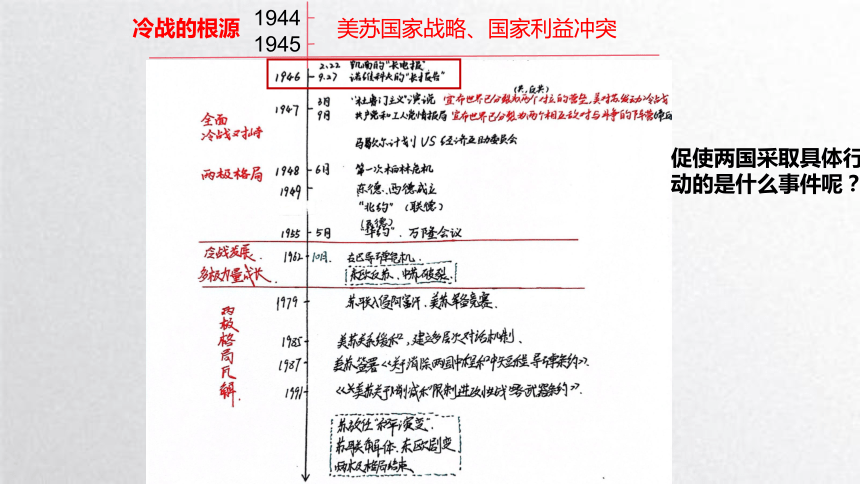 冷战的根源
1944
1945
美苏国家战略、国家利益冲突
1946 2.22 凯南的"长电报"
9.27 诺维科夫的"长报告"
(共,反共)
1947 3月 "杜鲁门主义"演说 宣布世界已分裂为两个对立的营垒,美对苏发动冷战
9月 共产党和工人党情报局 宣布世界已分裂为两个相互敌对与斗争的下阵营
全面
冷战对峙
马歇尔计划 VS 经济互助委员会
促使两国采取具体行
动的是什么事件呢?
两极格局
1948 6月 第一次柏林危机
1949 东德、西德成立
"北约"(联德)
1955 5月 "华约".万隆会议
冷战发展.
多极力量成长.
1962 10月. 古巴导弹危机.
东欧反苏、中苏破裂.
两极格局瓦解.
1979 苏联入侵阿富汗.美苏军备竞赛.
1985 美苏关系缓和,建立多层次对话机制.
1987 美苏签署《关于消除两国中程和中短程导弹条约》.
1991 《美苏关于削减和限制进攻性战略武器条约》.
苏改仕"和平演变".
苏联解体.东欧剧变.
两极格局结束.